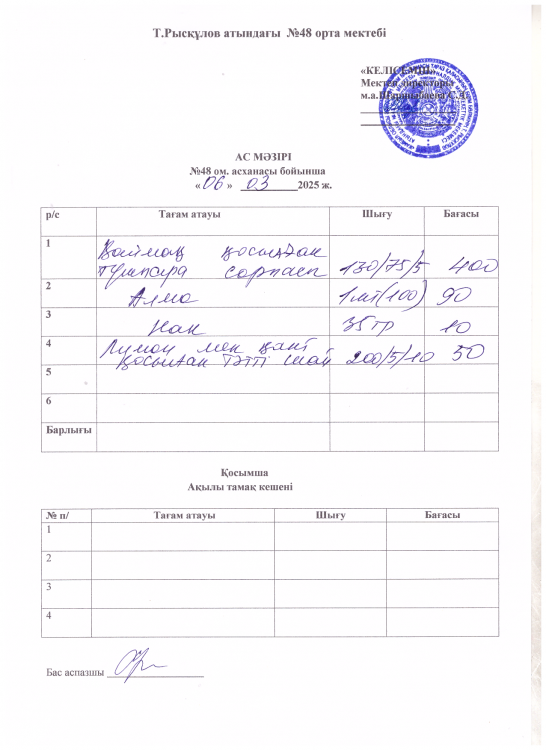 Т.Рысқұлов атындағы №48 орта мектебі
«КЕЛІСЕМІН»
Мектеп директоры
м.а.
АС МӘЗІРІ
№48 ом. асханасы бойынша
« 06 » 03 2025 ж.
р/с Тағам атауы Шығу Бағасы
1 Қаймақ қосылған
тұшпара сорпасы 130/75/5 400
2 Алма 1 шт (100) 90
3 Нан 35 гр 10
4 Лимон мен қант
қосылған тәтті шай 200/5/10 50
5
6
Барлығы
Қосымша
Ақылы тамақ кешені
№ п/ Тағам атауы Шығу Бағасы
1
2
3
4
Бас аспазшы